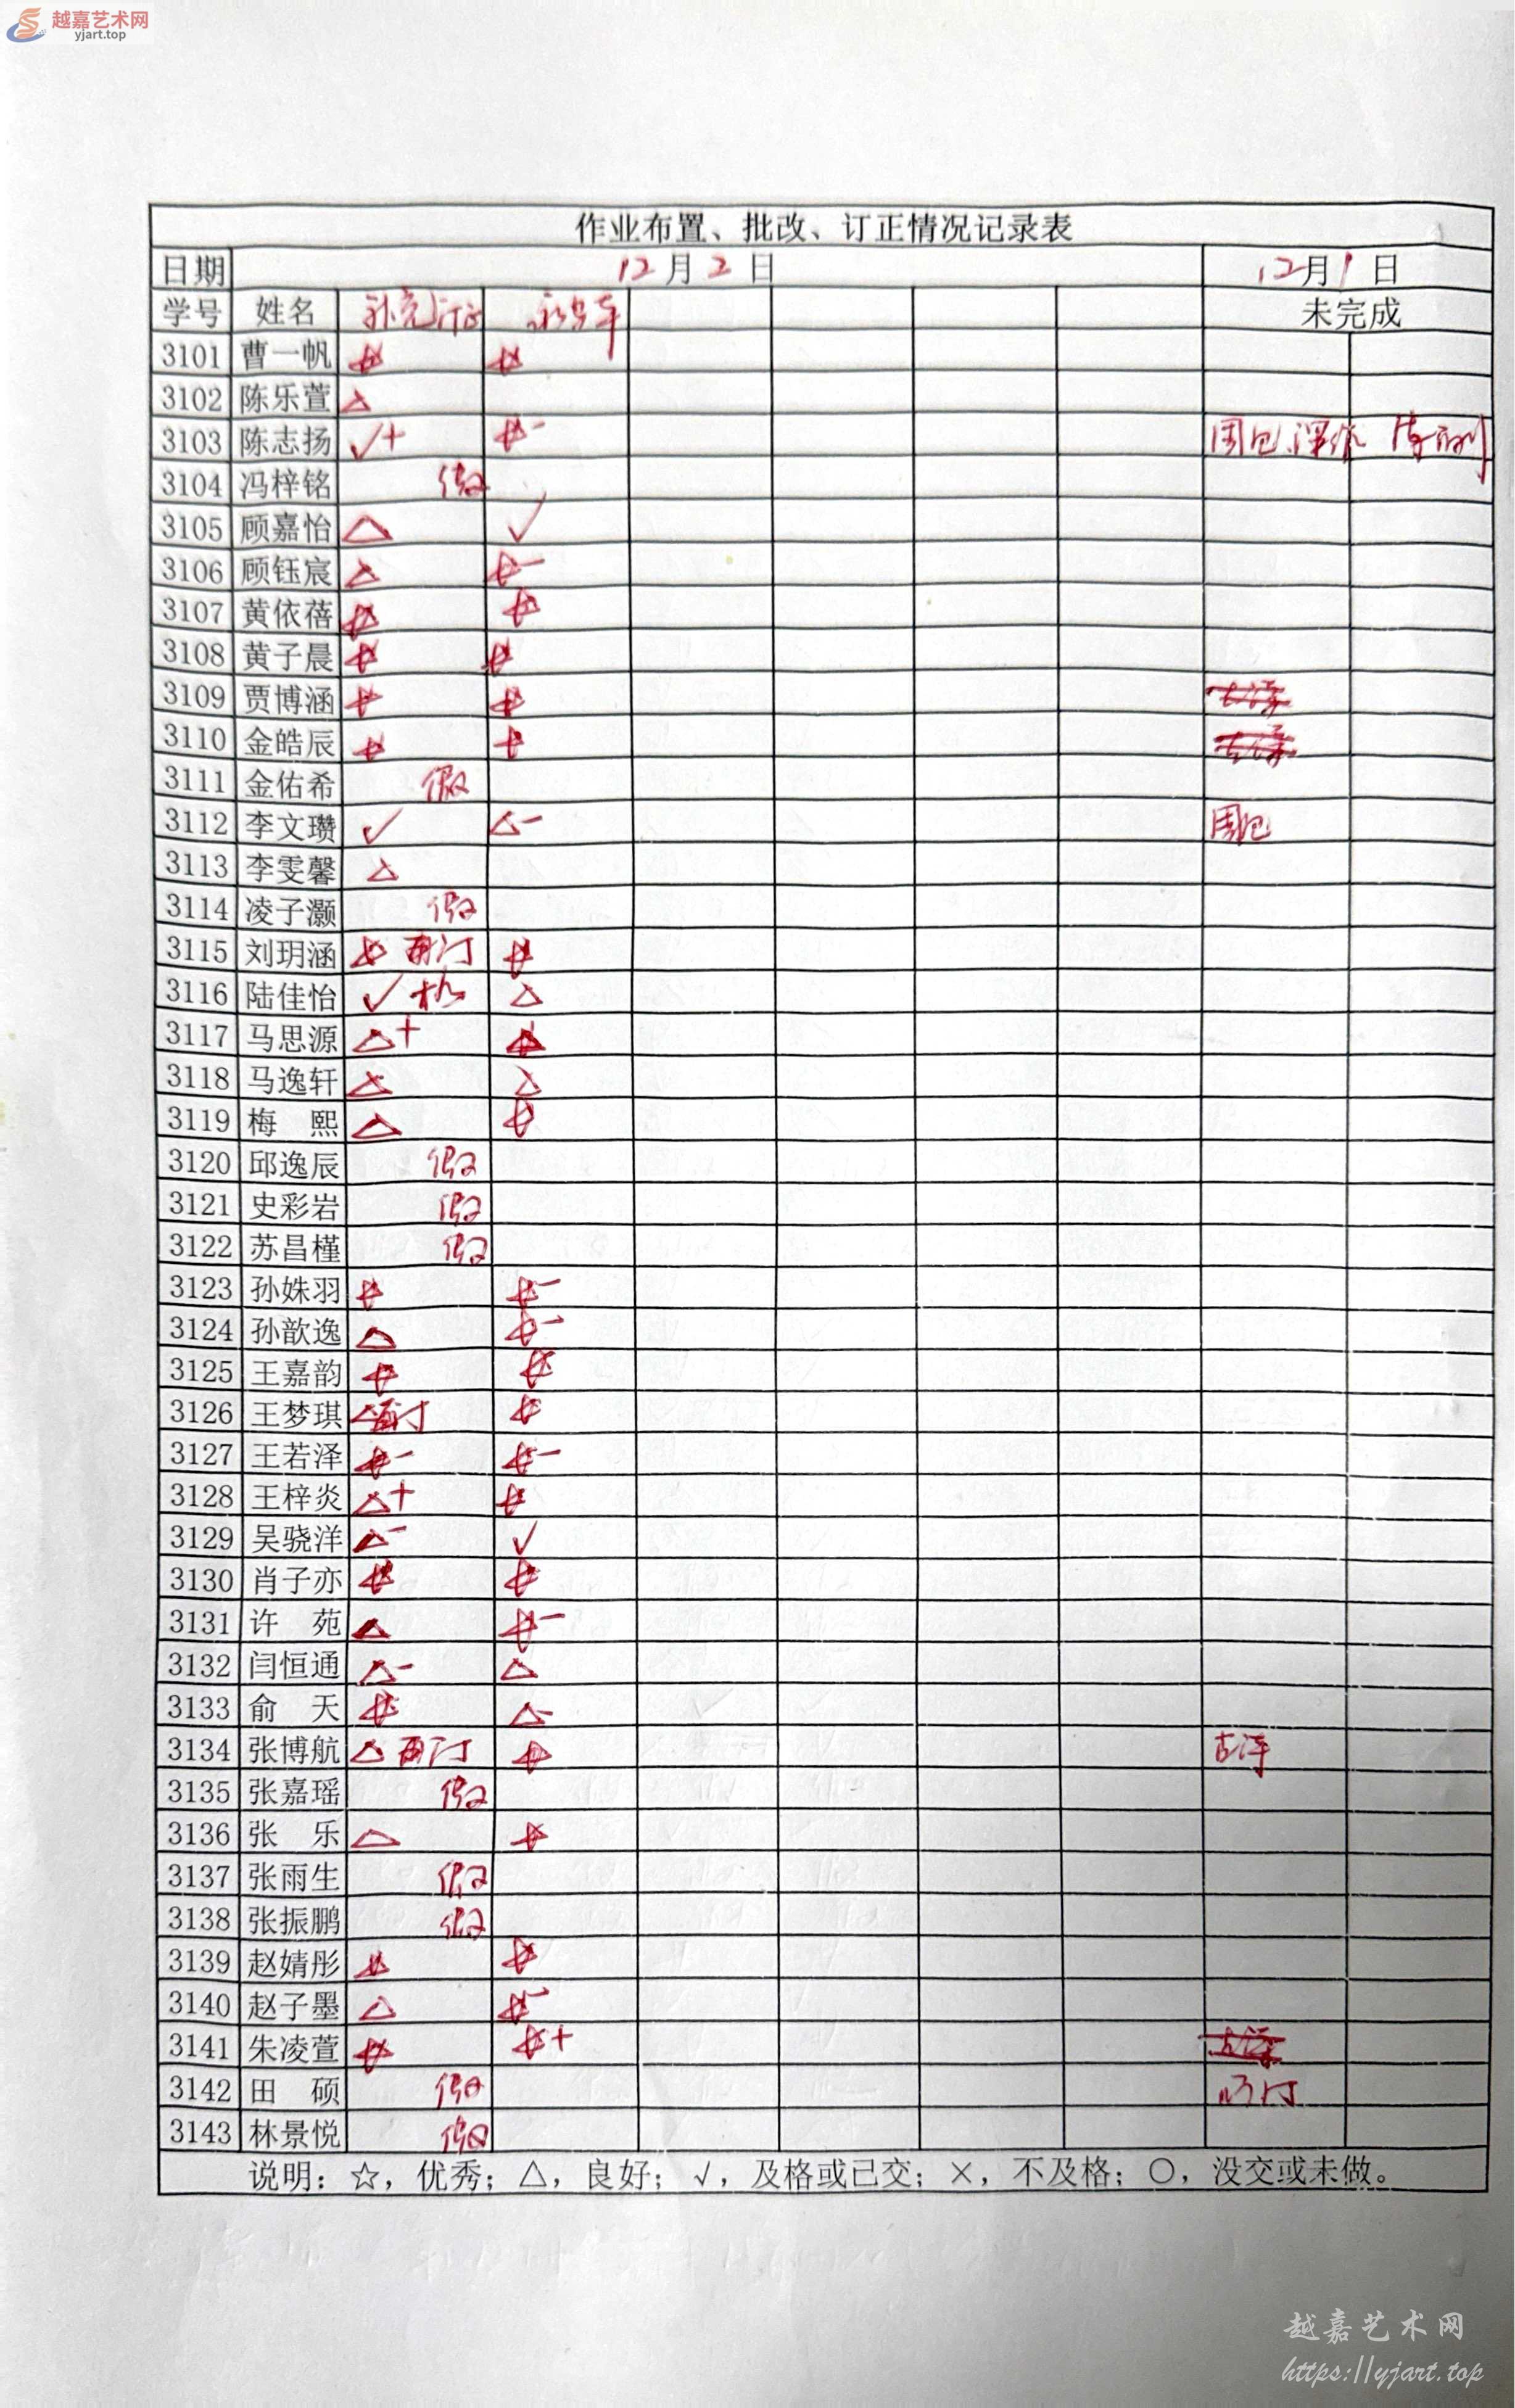 越嘉艺术网
yjart.top
作业布置、批改、订正情况记录表
日期 12月2日 12月1日
学号 姓名 补充订正 未完成
3101 曹一帆 ☆ ☆
3102 陈乐萱 △
3103 陈志扬 √+ ☆-
3104 冯梓铭 假
3105 顾嘉怡 △ √
3106 顾钰宸 △ ☆-
3107 黄依蓓 ☆ ☆
3108 黄子晨 ☆ ☆
3109 贾博涵 ☆ ☆
3110 金皓辰 ☆ ☆
3111 金佑希 假
3112 李文瓒 √ △-
3113 李雯馨 △
3114 凌子灏 假
3115 刘玥涵 ☆ 再订 ☆
3116 陆佳怡 √ △
3117 马思源 △+
3118 马逸轩 △ △
3119 梅熙 △ ☆
3120 邱逸辰 假
3121 史彩岩 假
3122 苏昌槿 假
3123 孙姝羽 ☆ ☆-
3124 孙歆逸 △ ☆-
3125 王嘉韵 ☆ ☆
3126 王梦琪 △再订 ☆
3127 王若泽 ☆- ☆-
3128 王梓炎 △+ ☆
3129 吴骁洋 △- √
3130 肖子亦 ☆ ☆
3131 许苑 △ ☆-
3132 闫恒通 △- △
3133 俞天 ☆ △-
3134 张博航 △ 再订 ☆
3135 张嘉瑶 假
3136 张乐 △ ☆
3137 张雨生 假
3138 张振鹏 假
3139 赵婧彤 ☆ ☆
3140 赵子墨 △ ☆-
3141 朱凌萱 ☆ ☆+
3142 田硕 假
3143 林景悦 假
说明：☆，优秀；△，良好；√，及格或已交；×，不及格；○，没交或未做。
越嘉艺术网
https://yjart.top